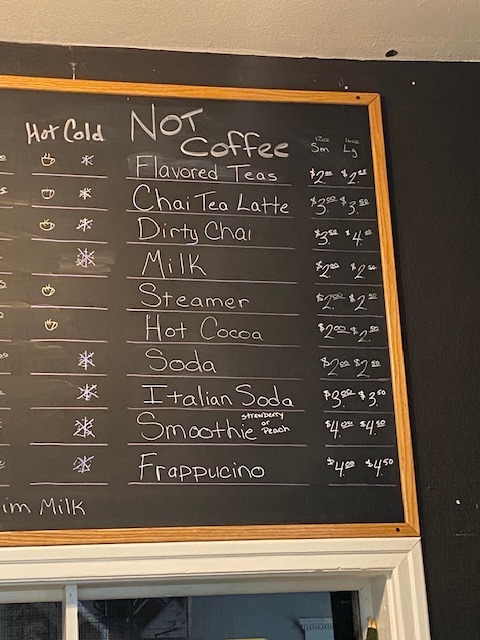 Hot Cold
NOT
Coffee
12oz 16oz
Sm Lg
Flavored Teas $2.00
Chai Tea Latte $3.00 $3.50
Dirty Chai $3.50 $4.00
Milk $2.00 $2.50
Steamer $2.00 $2.50
Hot Cocoa $2.00 $2.50
Soda $2.00 $2.50
Italian Soda $3.00 $3.50
Smoothie strawberry or Peach $4.00 $4.50
Frappucino $4.00 $4.50
im Milk